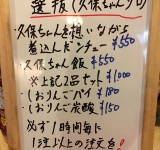 選抜(久保ちゃん
久保ちゃんを想いながら
煮込んだシチュー ¥550
久保ちゃん飯 ¥550
※上記2品セット ¥1000
しおりんごパイ ¥180
しおりんご炭酸 ¥150
必ず1時間毎に
1注以上の注文を